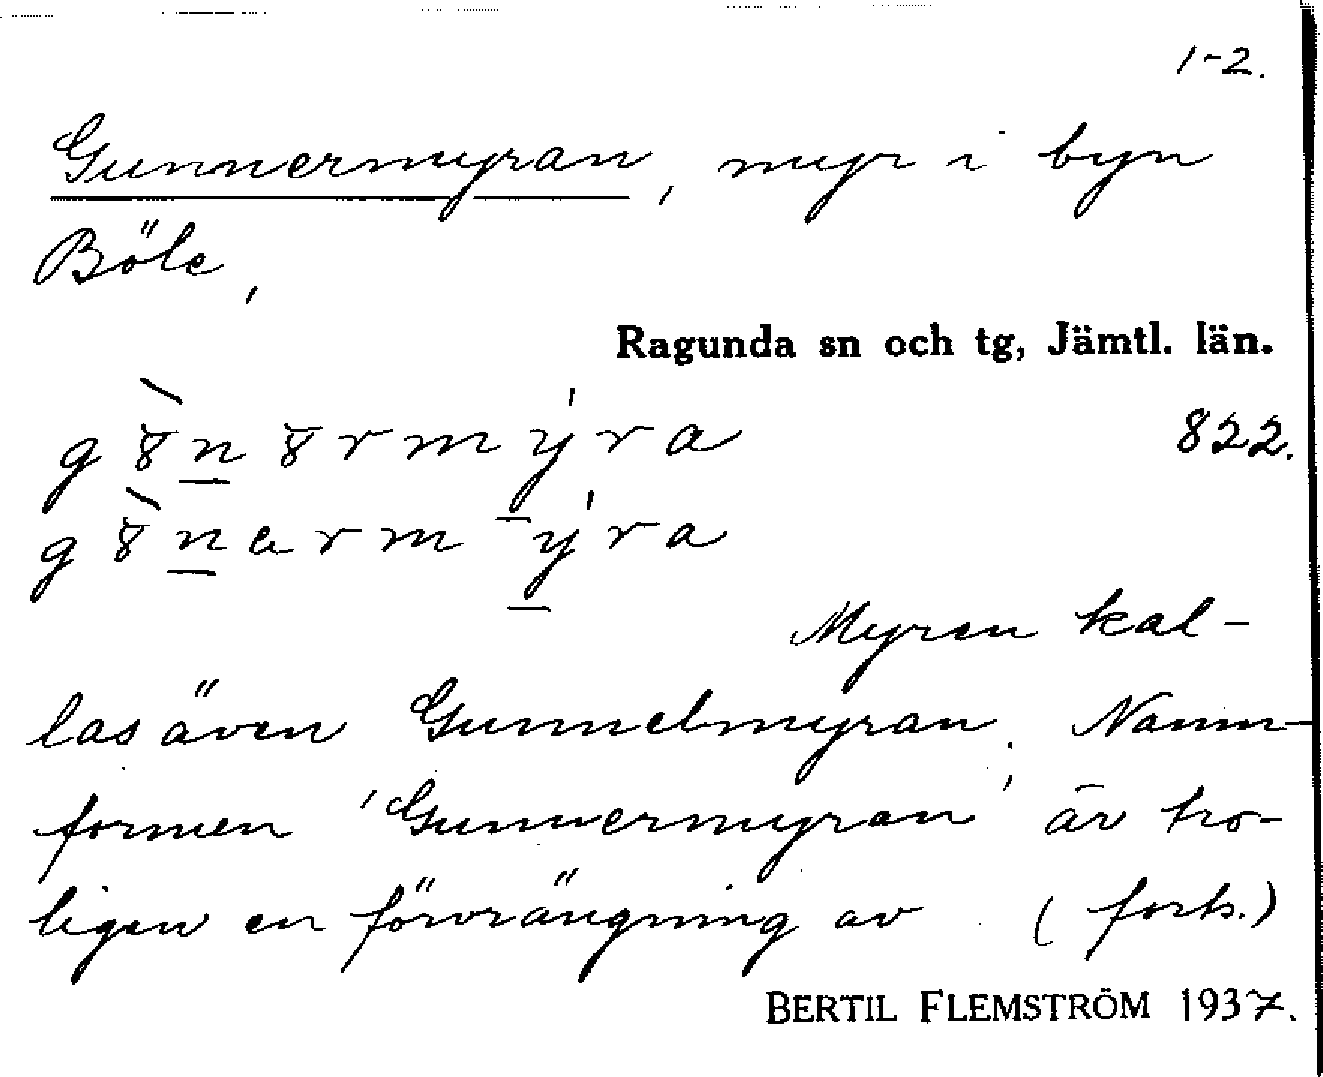 1-2.
Gunnermyran, myr i byn
Böle,
Ragunda sn och tg, Jämtl. län.
822.
Myren kal-
las även Gunnelmyran. Namn-
formen 'Gunnermyran' är tro-
ligen en förvrängning av (forts.)
BERTIL FLEMSTRÖM 1937.